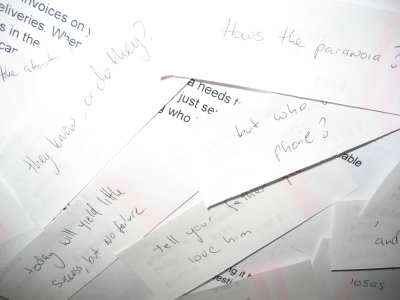 invoices on
eliveries. Wher
s in the
car
the about
they know, or do they?
Hows the paranoia?
a needs t
just se
who
but who
phone?
able
today will yield little
success, but no failure.
tell your father
love him
ing it
esti
and